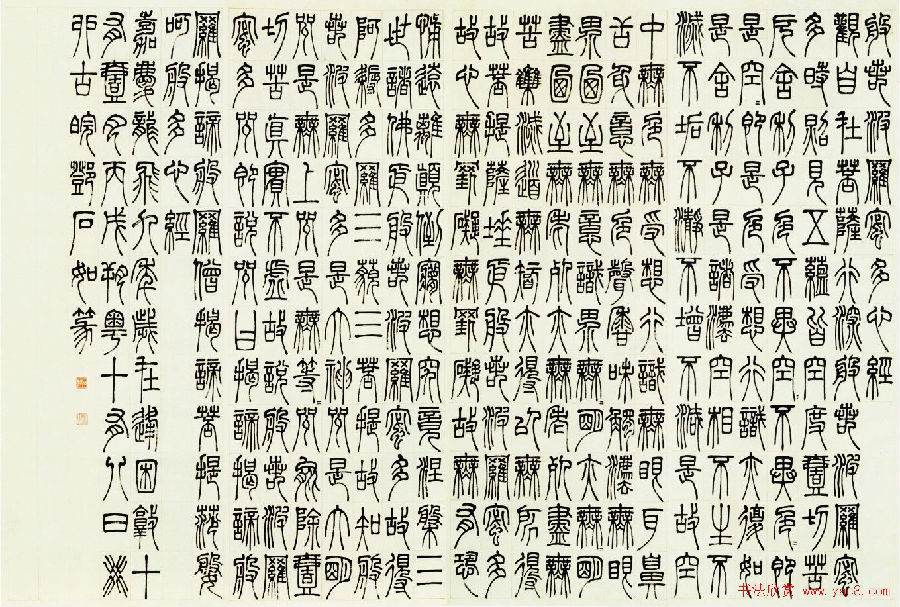 般若波羅密多心經
觀自在菩薩行深般若波羅密
多時照見五蘊皆空度壹切苦
厄舍利子色不異空=不異色=即
是空=即是色受想行識亦復如
是舍利子是諸法空相不生不
滅不垢不淨不增不減是故空
中無色無受想行識無眼耳鼻
舌身意無色聲香味觸法無眼
界乃至無意識界無=明亦無=明
盡乃至無老死亦無老死盡無
苦集滅道無智亦得以無所得
故菩提薩埵依般若波羅密多
故心無罣礙無罣礙故無有恐
怖遠離顛倒夢想究竟涅槃三
世諸佛依般若波羅密多故得
阿耨多羅三藐三菩提故知般
若波羅密多是大神咒是大明
咒是無上咒是無等=咒能除壹
切苦真實不虛故說般若波羅
密多咒即說咒曰揭諦揭諦般
羅揭諦般羅僧揭諦菩提薩婆
呵般多心經
嘉慶龍飛九年歲在逢困敦十
有壹月丙戌朔粵十有八日癸
卯古皖鄧石如篆
书法欣赏 www.yac8.com